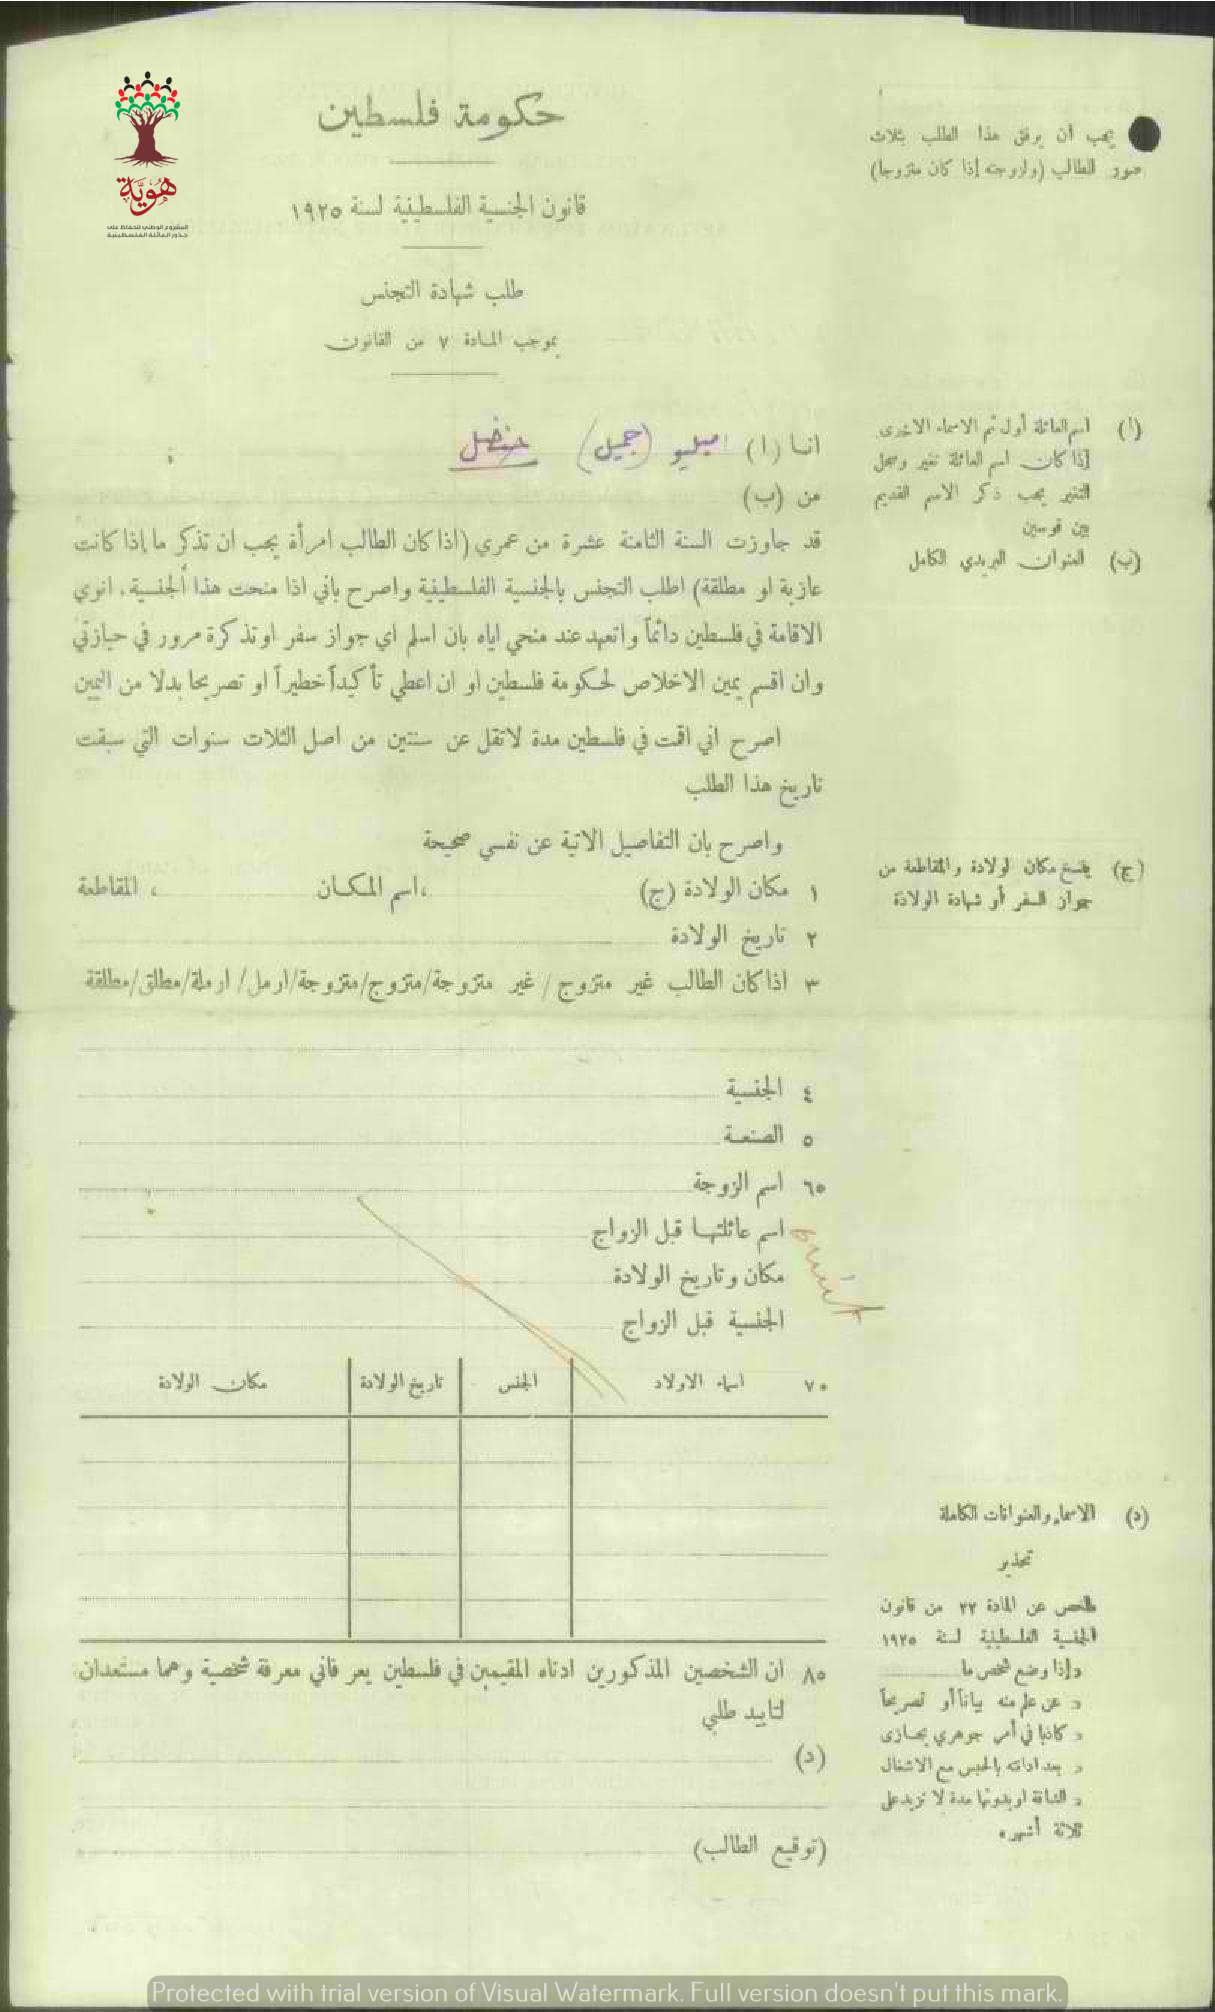 هويّة
المشروع الوطني للحفاظ على
جذور العائلة الفلسطينية
حكومة فلسطين
يجب أن يرفق هذا الطلب بثلاث
صور الطالب (ولزوجته إذا كان متزوجا)
قانون الجنسية الفلسطينية لسنة ١٩٢٥
طلب شهادة التجنس
بموجب المادة ٧ من القانون
(ا) اسم العائلة أول ثم الاسماء الاخرى
إذا كان اسم العائلة تغير وسجل
التغير يجب ذكر الاسم القديم
بين قوسين
(ب) العنوان البريدي الكامل
انا (ا) اميليو (جميل) حنضل
من (ب)
قد جاوزت السنة الثامنة عشرة من عمري (اذا كان الطالب امرأة يجب ان تذكر ما إذا كانت
عازبة او مطلقة) اطلب التجنس بالجنسية الفلسطينية واصرح باني اذا منحت هذا الجنسية، انوي
الاقامة في فلسطين دائماً واتعهد عند منحي اياه بان اسلم اي جواز سفر او تذكرة مرور في حيازتي
وان اقسم يمين الاخلاص لحكومة فلسطين او ان اعطي تأكيداً خطيراً او تصريحا بدلا من اليمين
اصرح اني اقمت في فلسطين مدة لاتقل عن سنتين من اصل الثلاث سنوات التي سبقت
تاريخ هذا الطلب
واصرح بان التفاصيل الاتية عن نفسي صحيحة
(ج) ينسخ مكان لولادة والمقاطعة من
جواز السفر أو شهادة الولادة
١ مكان الولادة (ج) ،اسم المكان ، المقاطعة
٢ تاريخ الولادة
٣ اذا كان الطالب غير متزوج / غير متزوجة/متزوج/متزوجة/ارمل/ ارملة/مطلق/مطلقة
٤ الجنسية
٥ الصنعة
٦٥ اسم الزوجة
اسم عائلتها قبل الزواج
مكان وتاريخ الولادة
الجنسية قبل الزواج
٧٠ اسماء الاولاد الجنس تاريخ الولادة مكان الولادة
(د) الاسماء والعنوانات الكاملة
تحذير
ملخص عن المادة ٢٢ من قانون
الجنسية الفلسطينية لسنة ١٩٢٥
«إذا وضع شخص ما
« عن علم منه بياناً أو تصريحاً
« كاذبا في أمر جوهري يجازى
« بعد ادانته بالحبس مع الاشغال
« الشاقة او بدونها مدة لا تزيد على
ثلاثة أشهر»
٨٥ ان الشخصين المذكورين ادناه المقيمين في فلسطين يعرفاني معرفة شخصية وهما مستعدان
لتاييد طلبي
(د)
(توقيع الطالب)
Protected with trial version of Visual Watermark. Full version doesn't put this mark.